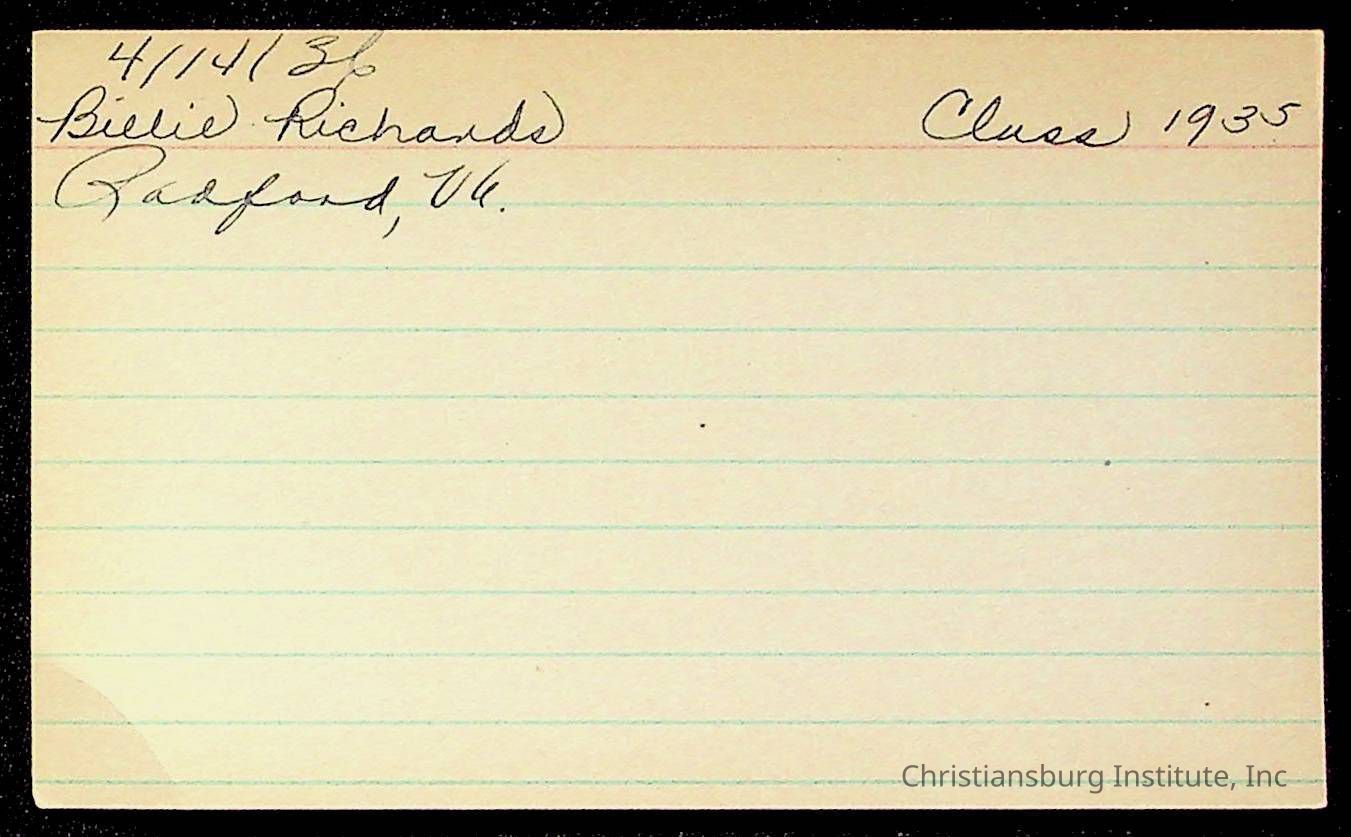 4/14/36
Billie Richards Class 1935
Radford, Va.
Christiansburg Institute, Inc